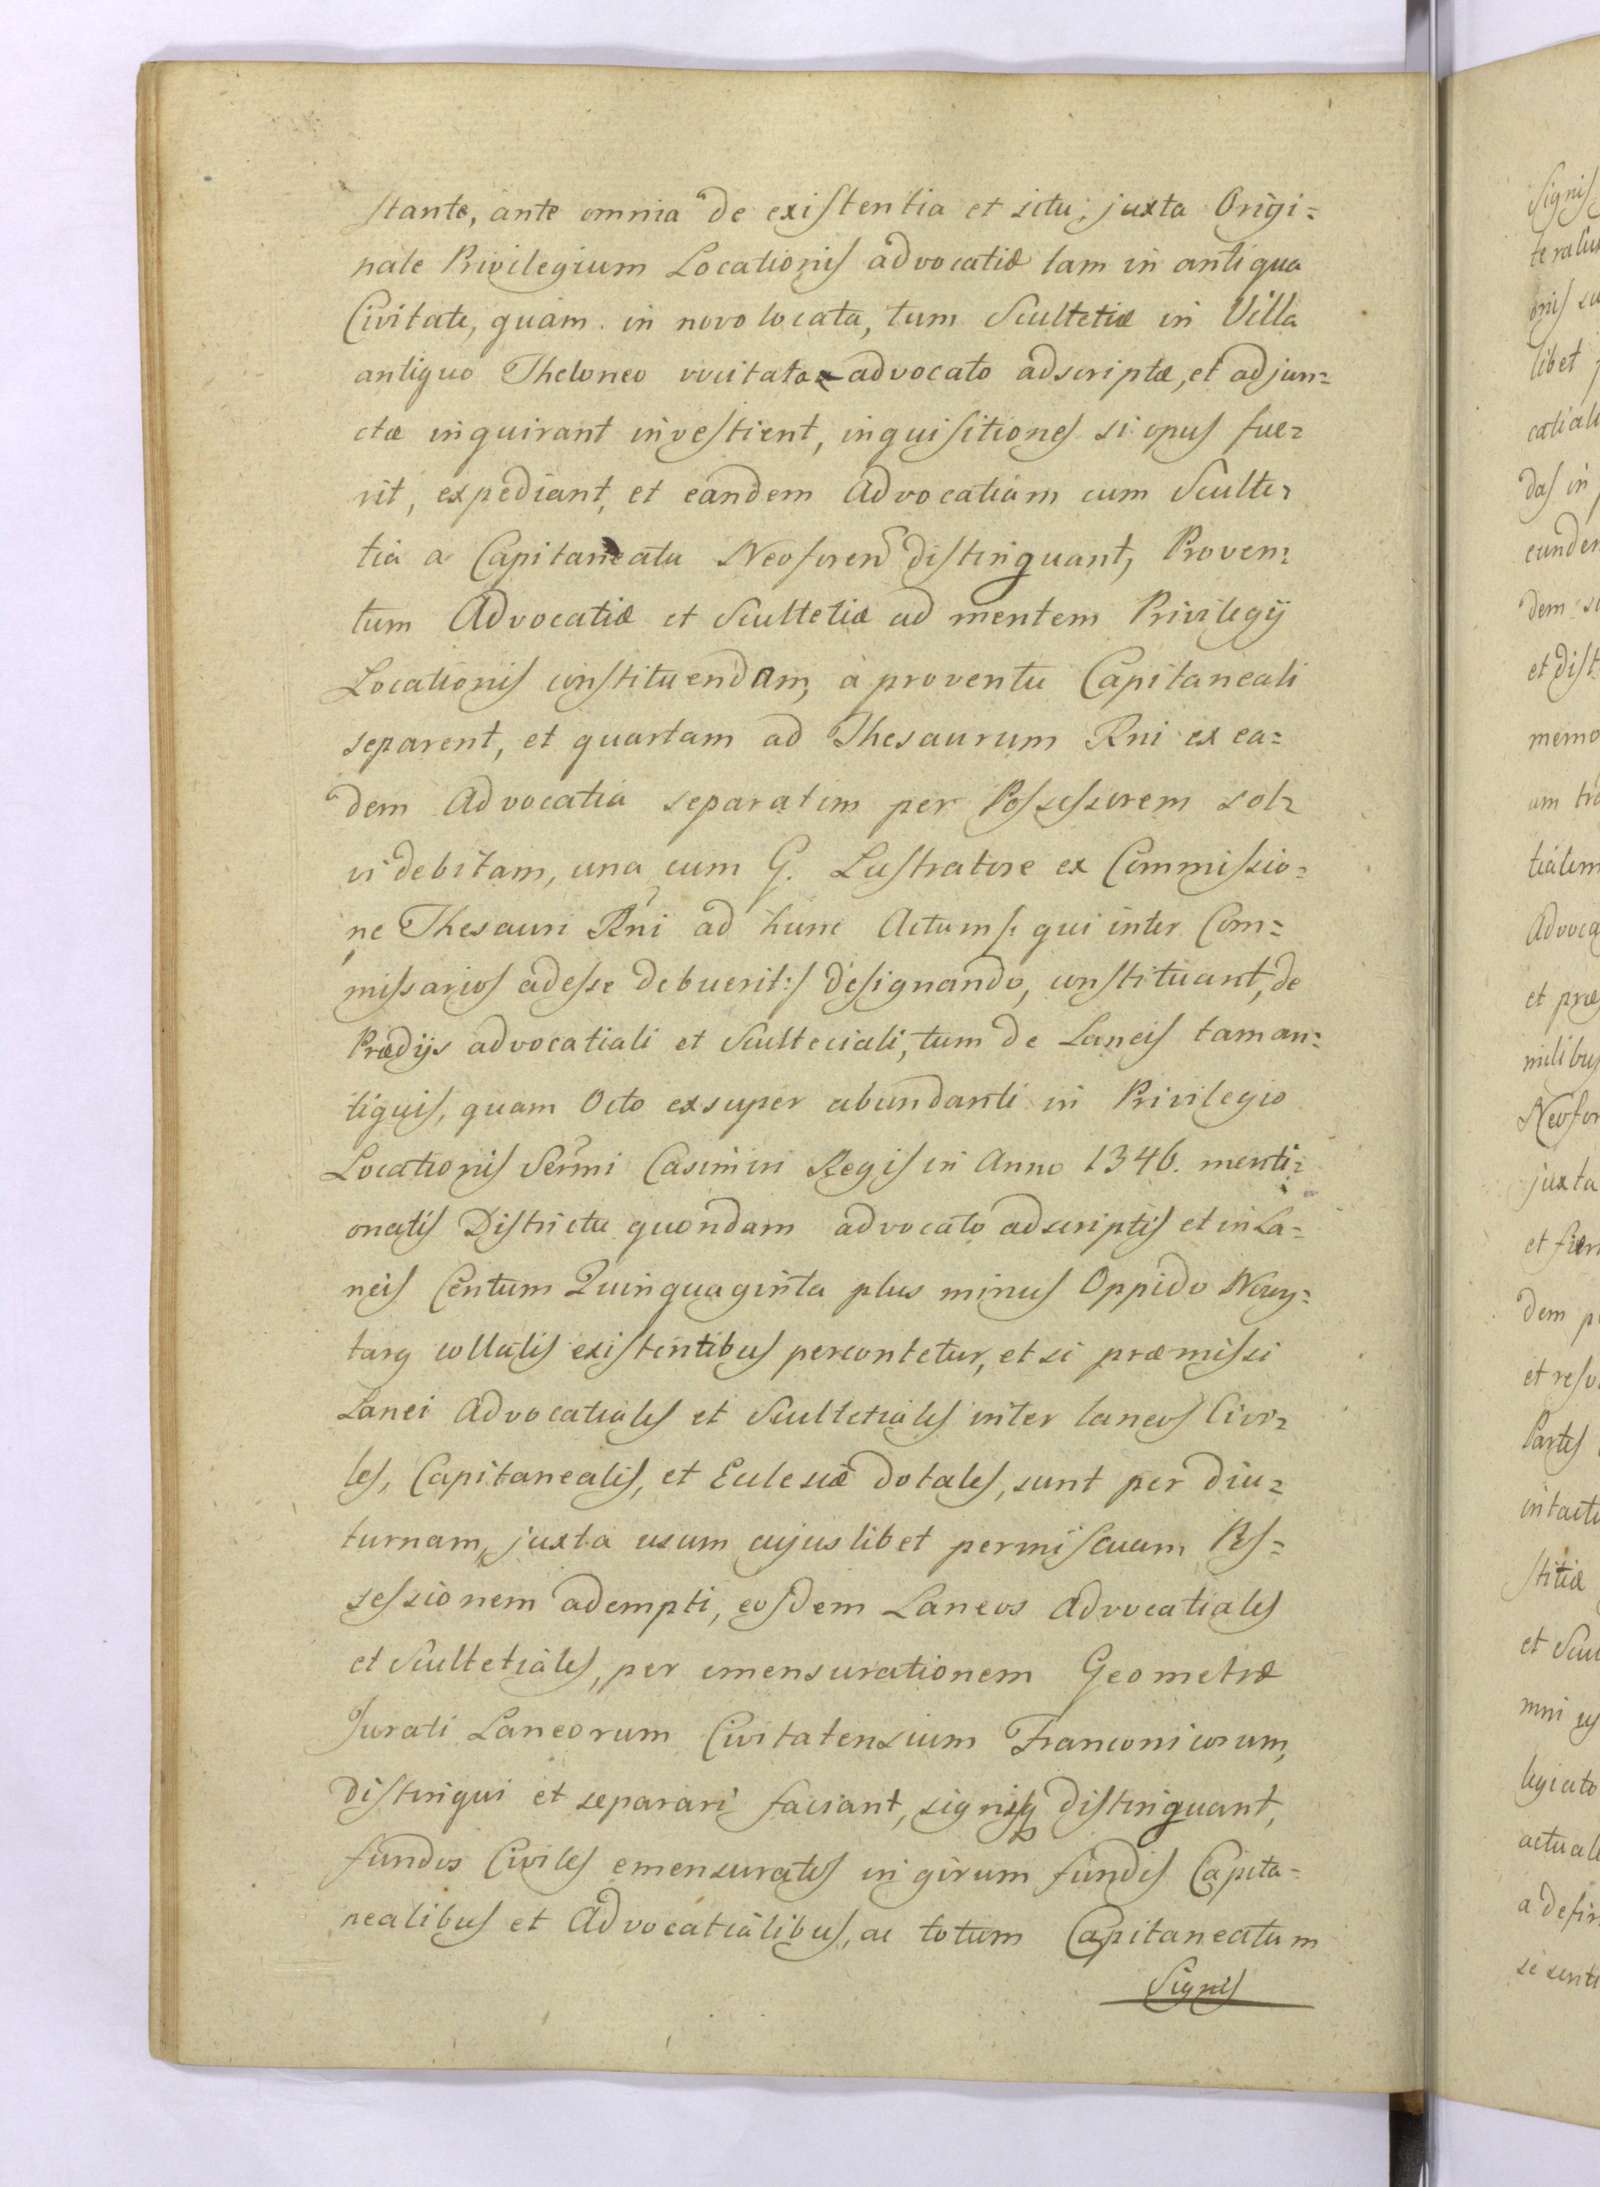 stante, ante omnia de existentia et situ, juxta Origi=
nale Privilegium Locationis advocatiæ tam in antiqua
Civitate, quam in novo locata, tum Scultetiæ in Villa
antiquo Theloneo vocitata advocato adscriptæ, et adjun=
ctæ inquirant investient, inquisitiones si opus fue=
rit, expediant, et eandem Advocatiam cum Sculte=
tia a Capitaneatu Neoforen distinguant, Proven=
tum Advocatiæ et Scultetiæ ad mentem Privilegij
Locationis constituendam, a proventu Capitaneali
separent, et quartam ad Thesaurum Rni ex ea=
dem Advocatia separatim per Possessorem sol=
vi debitam, una cum G. Lustratore ex Commissio=
ne Thesauri Rni ad hunc Actum /: qui inter Com=
missarios adesse debuerit :/ designando, constituant, de
Prædijs advocatiali et Sculteciali, tum de Laneis tam an=
tiquis, quam Octo exsuper abundanti in Privilegio
Locationis Sermi Casimiri Regis in Anno 1346. menti=
onatis Districtu quondam advocato adscriptis et in La=
neis Centum Quinquaginta plus minus Oppido Nowy=
targ collatis existentibus percontetur, et si præmissi
Lanei Advocatiales et Scultetiales inter laneos Civi=
les, Capitaneales, et Eclesiæ dotales, sunt per diu=
turnam, juxta usum cujuslibet permiscuam Pos=
sessionem adempti, eosdem Laneos Advocatiales
et Scultetiales, per emensurationem Geometræ
Jurati Laneorum Civitatensium Franconicorum,
distingui et separari faciant, signisq distinguant,
fundos Civiles emensuratos in girum fundis Capita=
nealibus et Advocatialibus, ac totum Capitaneatum
Signis